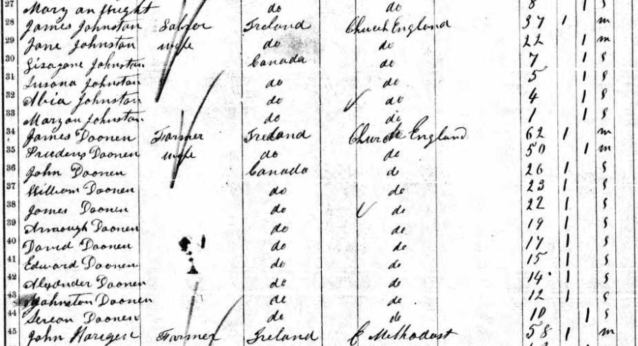 27 Mary an Wright do do 8 1 s
28 James Johnston Labor Ireland Church England 37 1 m
29 Jane Johnston wife do do 22 1 m
30 Johnston Canada do 7 1 s
31 Susana Johnston do do 5 1 s
32 Johnston do do 4 1 s
33 Maryan Johnston do do 1 1 s
34 James Doonen Farmer Ireland Church England 62 1 m
35 Doonen wife do do 50 1 m
36 John Doonen Canada do 26 1 s
37 William Doonen do do 23 1 s
38 James Doonen do do 22 1 s
39 Armough Doonen do do 19 1 s
40 David Doonen do do 17 1 s
41 Edward Doonen do do 15 1 s
42 Alexander Doonen do do 14 1 s
43 Johnston Doonen do do 12 1 s
44 Doonen do do 10 1 s
45 John Farmer Ireland E Methodast 58 1 m